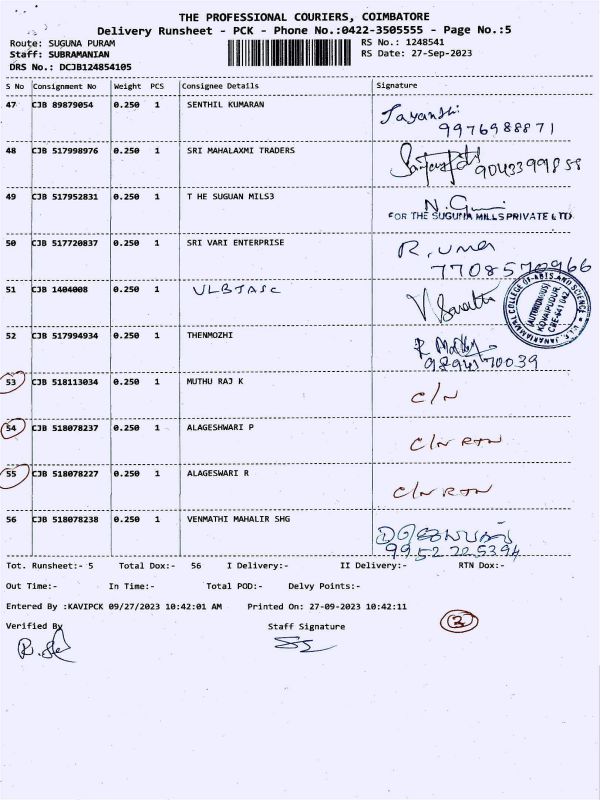 THE PROFESSIONAL COURIERS, COIMBATORE
Delivery Runsheet - PCK - Phone No.:0422-3505555 - Page No.:5
Route: SUGUNA PURAM RS No.: 1248541
Staff: SUBRAMANIAN RS Date: 27-Sep-2023
DRS No.: DCJB124854105
S No Consignment No Weight PCS Consignee Details Signature
47 CJB 89879054 0.250 1 SENTHIL KUMARAN Jayanthi
9976988871
48 CJB 517998976 0.250 1 SRI MAHALAXMI TRADERS 9043399858
49 CJB 517952831 0.250 1 T HE SUGUAN MILS3
FOR THE SUGUNA MILLS PRIVATE LTD
50 CJB 517720837 0.250 1 SRI VARI ENTERPRISE R. Uma
7708570966
51 CJB 1404008 0.250 1 VLBJASC
V.L.B. JANAKIAMMAL COLLEGE OF ARTS AND SCIENCE
(AUTONOMOUS)
KOVAIPUDUR
CBE-641 042
52 CJB 517994934 0.250 1 THENMOZHI
9894570039
53 CJB 518113034 0.250 1 MUTHU RAJ K C/N
54 CJB 518078237 0.250 1 ALAGESHWARI P C/N RTN
55 CJB 518078227 0.250 1 ALAGESWARI R C/N RTN
56 CJB 518078238 0.250 1 VENMATHI MAHALIR SHG
9952225394
Tot. Runsheet:- 5 Total Dox:- 56 I Delivery:- II Delivery:- RTN Dox:-
Out Time:- In Time:- Total POD:- Delvy Points:-
Entered By :KAVIPCK 09/27/2023 10:42:01 AM Printed On: 27-09-2023 10:42:11
Verified By Staff Signature